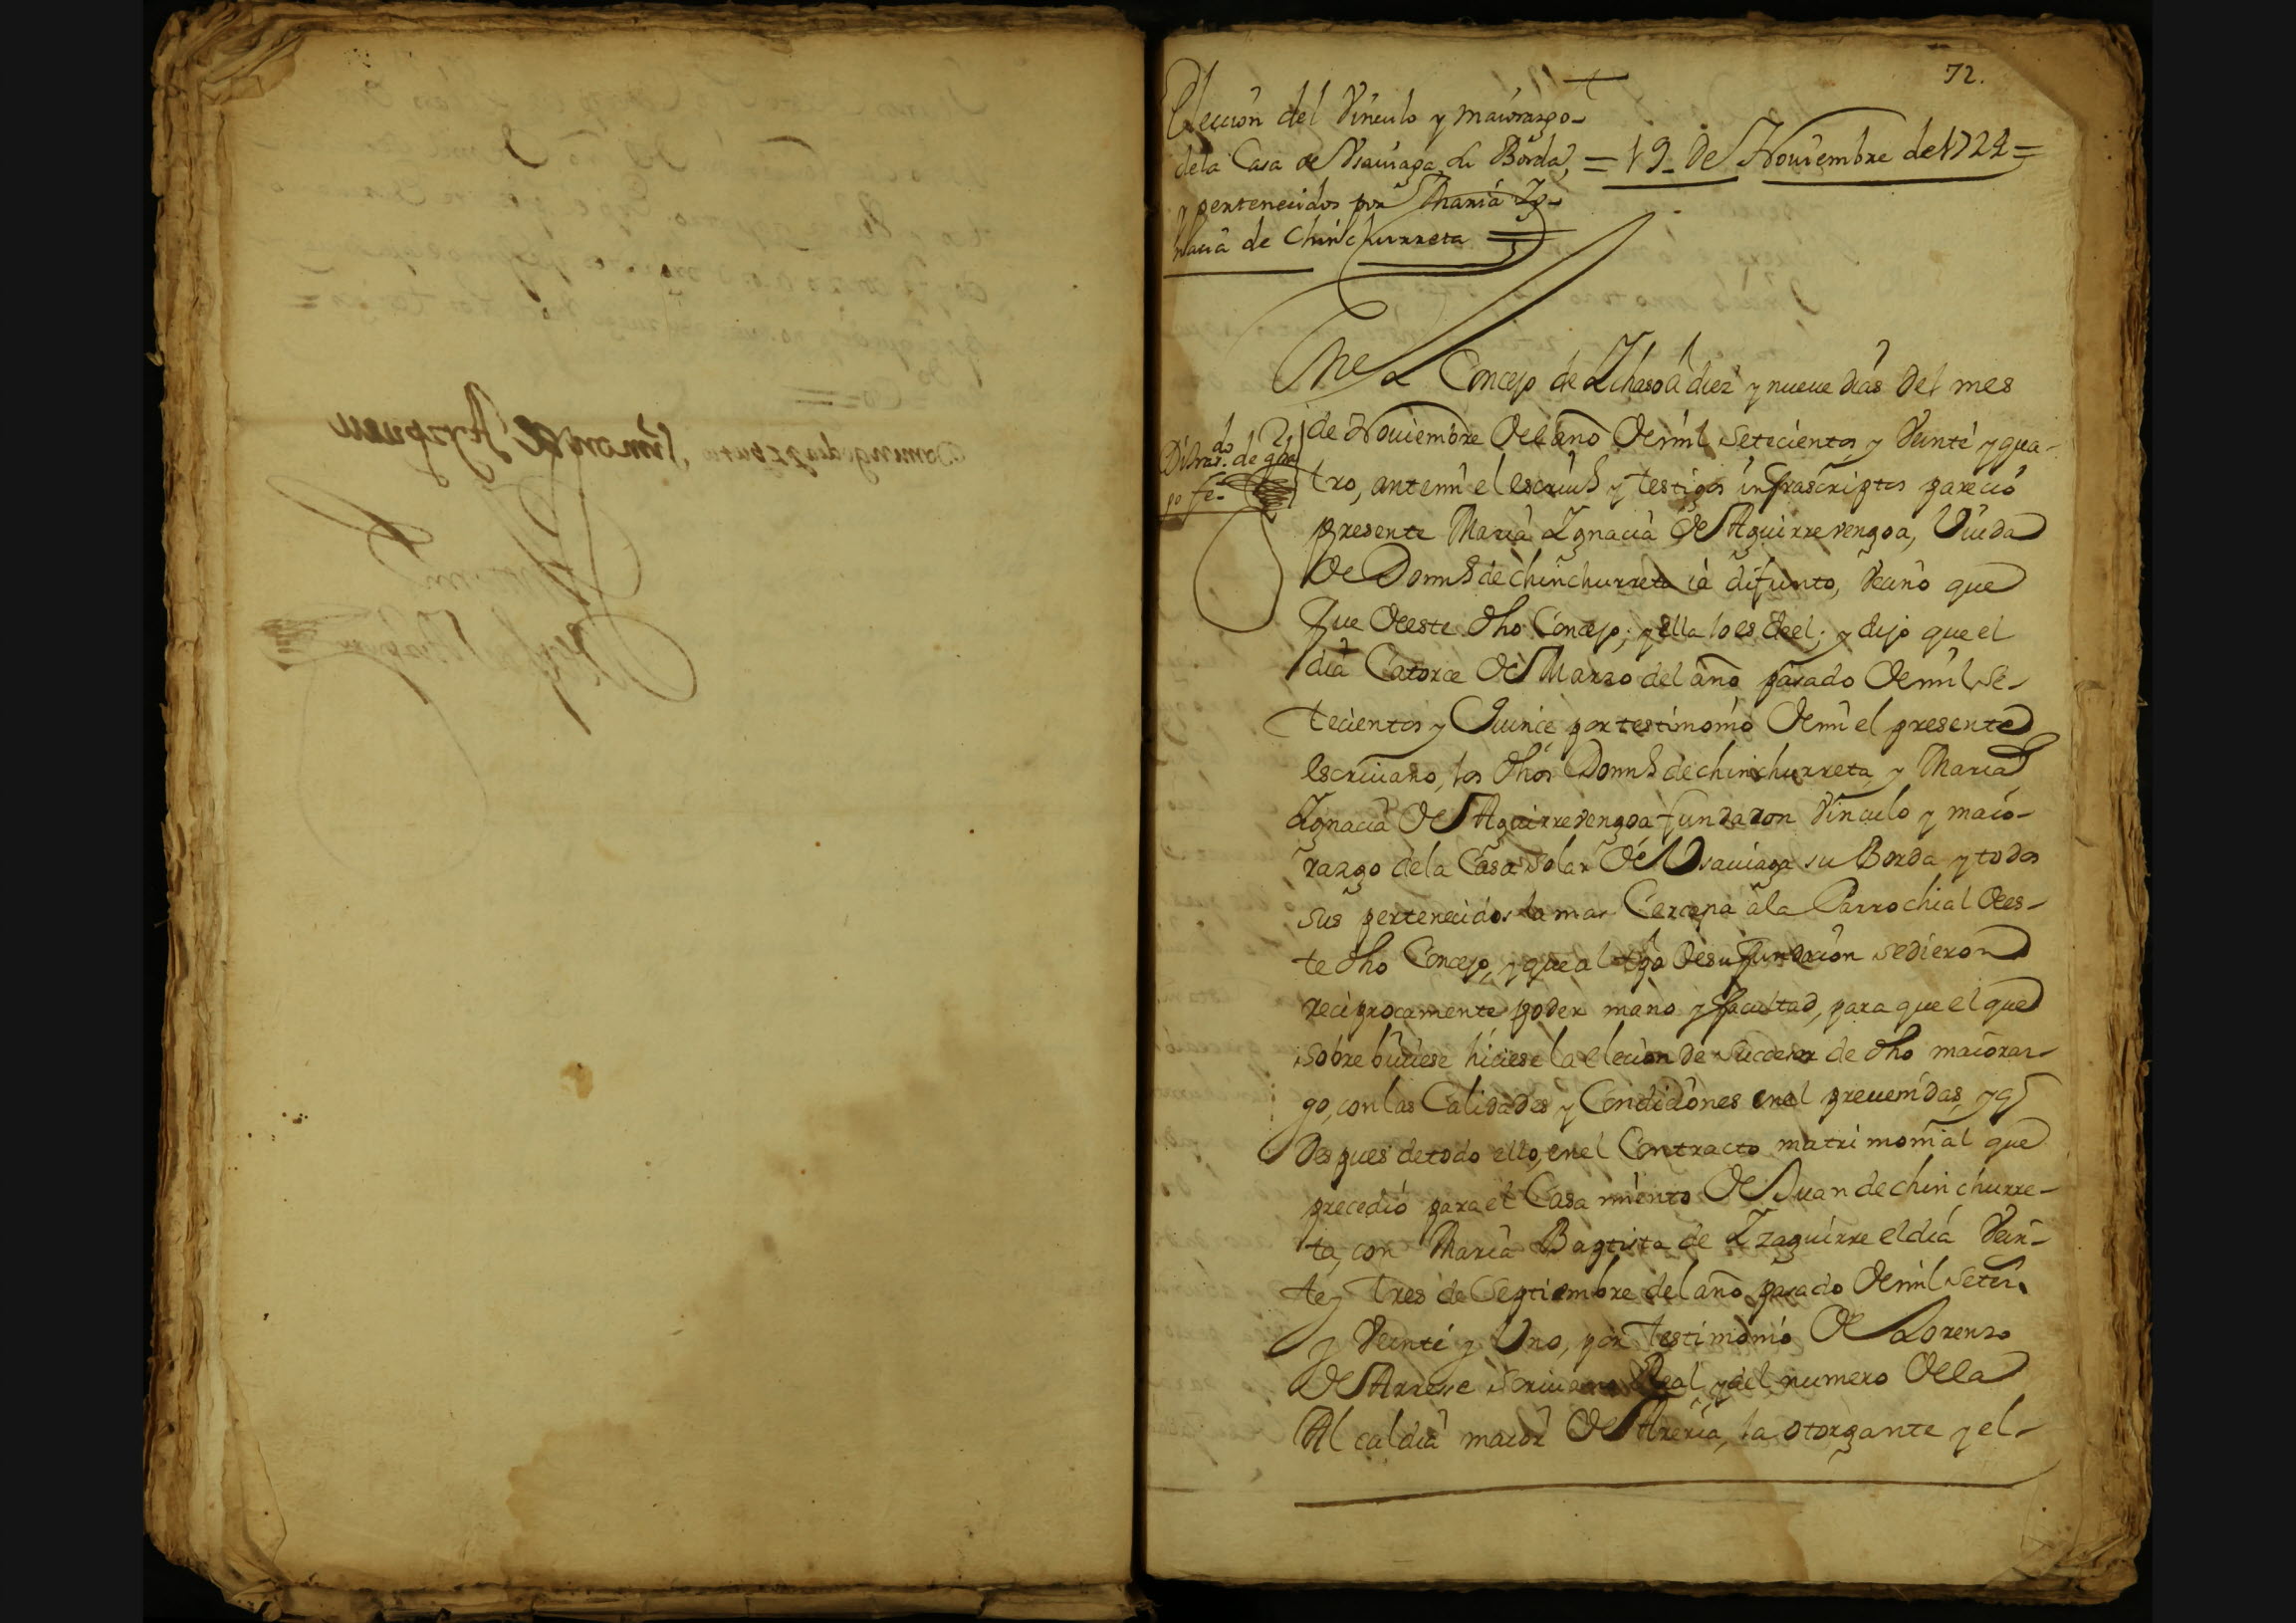 72.
Eleccion del Vinculo y maiorazgo
de la Casa de Vsauiaga su Borda, = 19 de Nouiembre de 1724 =
y pertenecidos por Maria Ig-
nacia de Chinchurreta
En el Concejo de Ichaso a diez y nueue dias del mes
de Nouiembre del año de mil setecientos y Veinte y qua-
tro, ante mi el escriuº y testigos infrascriptos parecio
presente Maria Ignacia de Aguirrevengoa, Viuda
de Domº de chinchurreta ia difunto, vecino que
fue de este dho Concejo; y ella lo es de el; y dijo que el
dia Catorce de Marzo del año pasado de mil se-
tecientos y Quince por testimonio de mi el presente
escriuano, los dhos Domº de chinchurreta, y Maria
Ignacia de Aguirrevengoa fundaron Vinculo y maio-
razgo de la Casa solar de Vsauiaga su Borda y todos
sus pertenecidos la mas Cercana a la Parrochial de es-
te dho Concejo, y que al tpo de su fundacion se dieron
reciprocamente poder mano y facultad, para que el que
sobrebiuiese hiciese la elecion de succesor de dho maioraz-
go, con las Calidades y Condiciones en el preuenidas, y q
despues de todo ello, en el Contracto matrimonial que
precedio para el Casamiento de Juan de chinchurre-
ta, con Maria Baptista de Izaguirre el dia Vein-
te y tres de Septiembre del año pasado de mil setecˢ
y Veinte y Uno, por testimonio de Lorenzo
de Arrese escriuano Real y del numero de la
Alcaldia maior de Areria, la otorgante y el